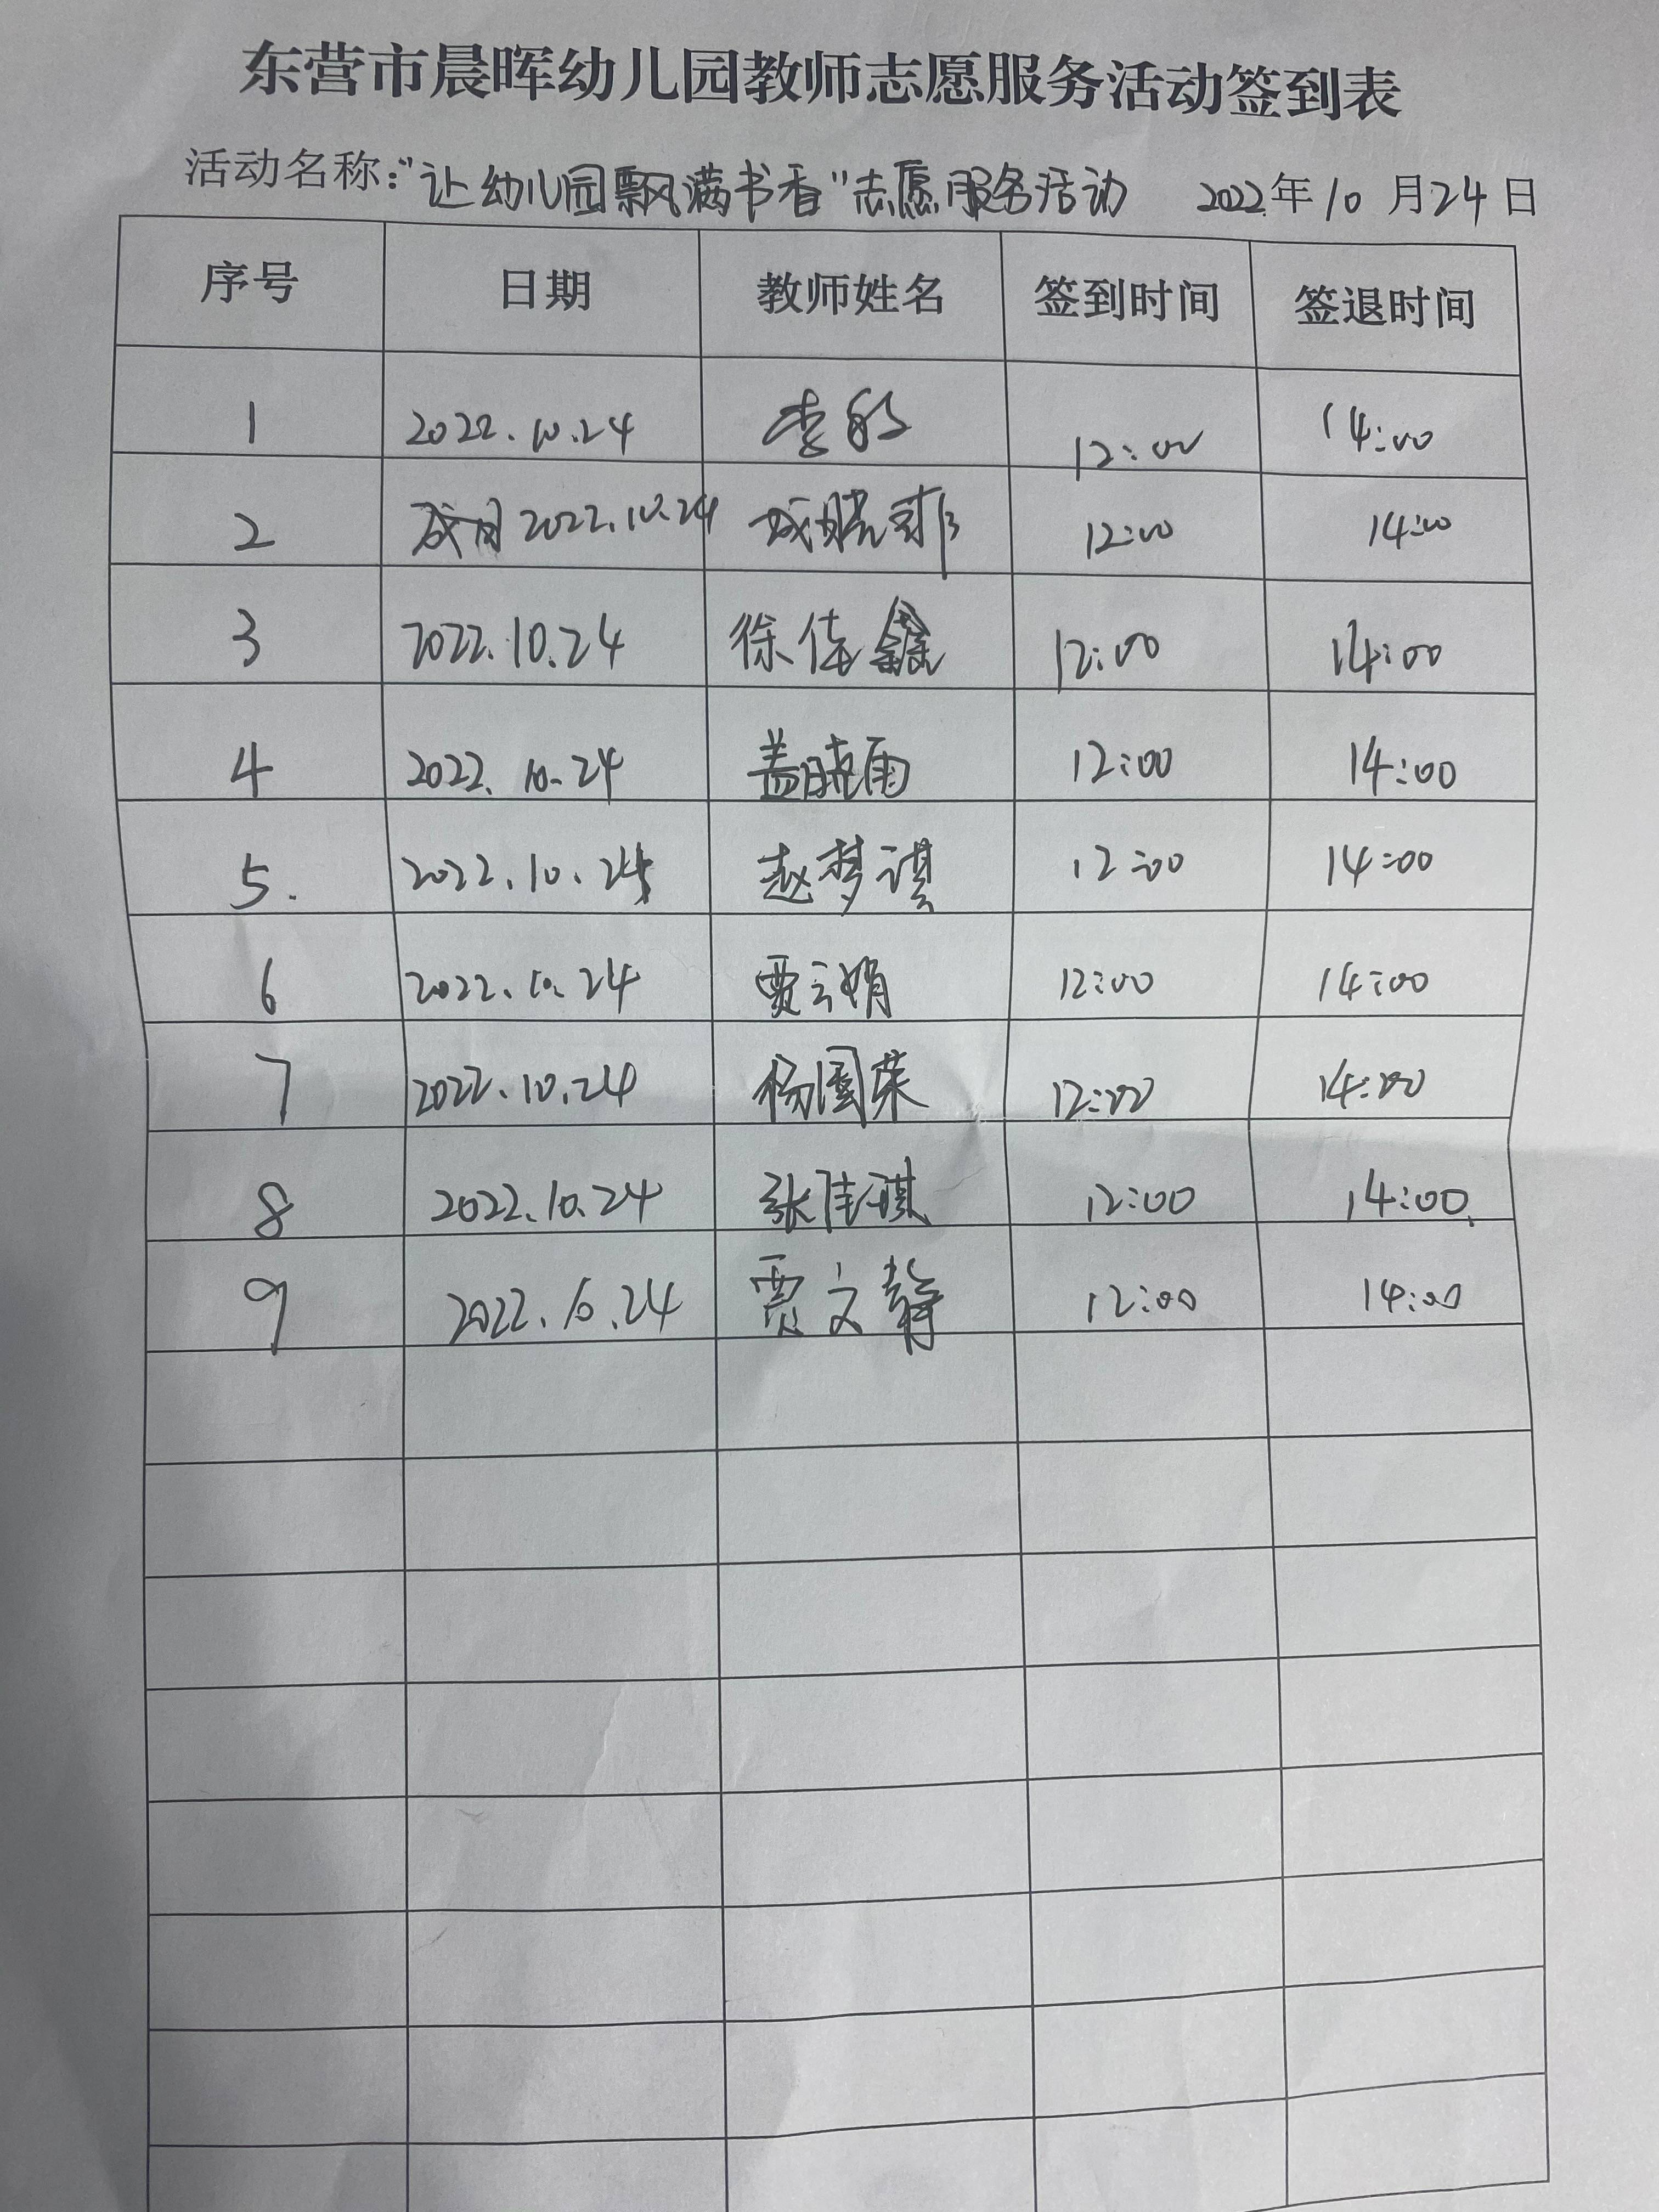 东营市晨晖幼儿园教师志愿服务活动签到表
活动名称:"让幼儿园飘满书香"志愿服务活动 2022年10月24日
序号 日期 教师姓名 签到时间 签退时间
1 2022.10.24 李 12:00 14:00
2 2022.10.24 晓菲 12:00 14:00
3 2022.10.24 徐佳鑫 12:00 14:00
4 2022.10.24 盖晓雨 12:00 14:00
5. 2022.10.24 赵梦淇 12:00 14:00
6 2022.10.24 贾云娟 12:00 14:00
7 2022.10.24 杨国荣 12:00 14:00
8 2022.10.24 张佳琪 12:00 14:00
9 2022.10.24 贾文静 12:00 14:00